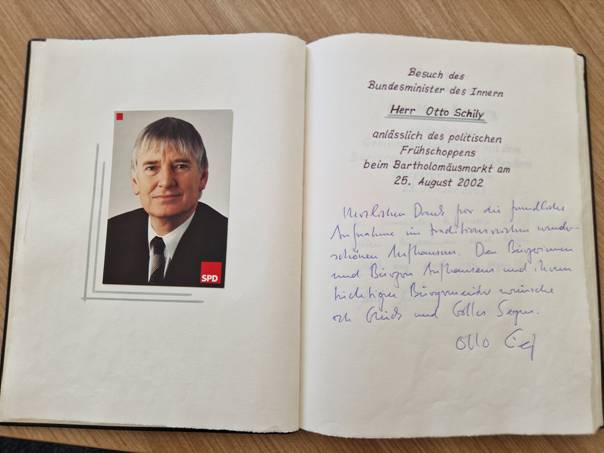 SPD
Besuch des
Bundesminister des Innern
Herr Otto Schily
anlässlich des politischen
Frühschoppens
beim Bartholomäusmarkt am
25. August 2002
Herzlichen Dank für die freundliche
Aufnahme im traditionsreichen wunder-
schönen Aufhausen. Den Bürgerinnen
und Bürgern Aufhausens und ihrem
tüchtigen Bürgermeister wünsche
ich Glück und Gottes Segen.
Otto